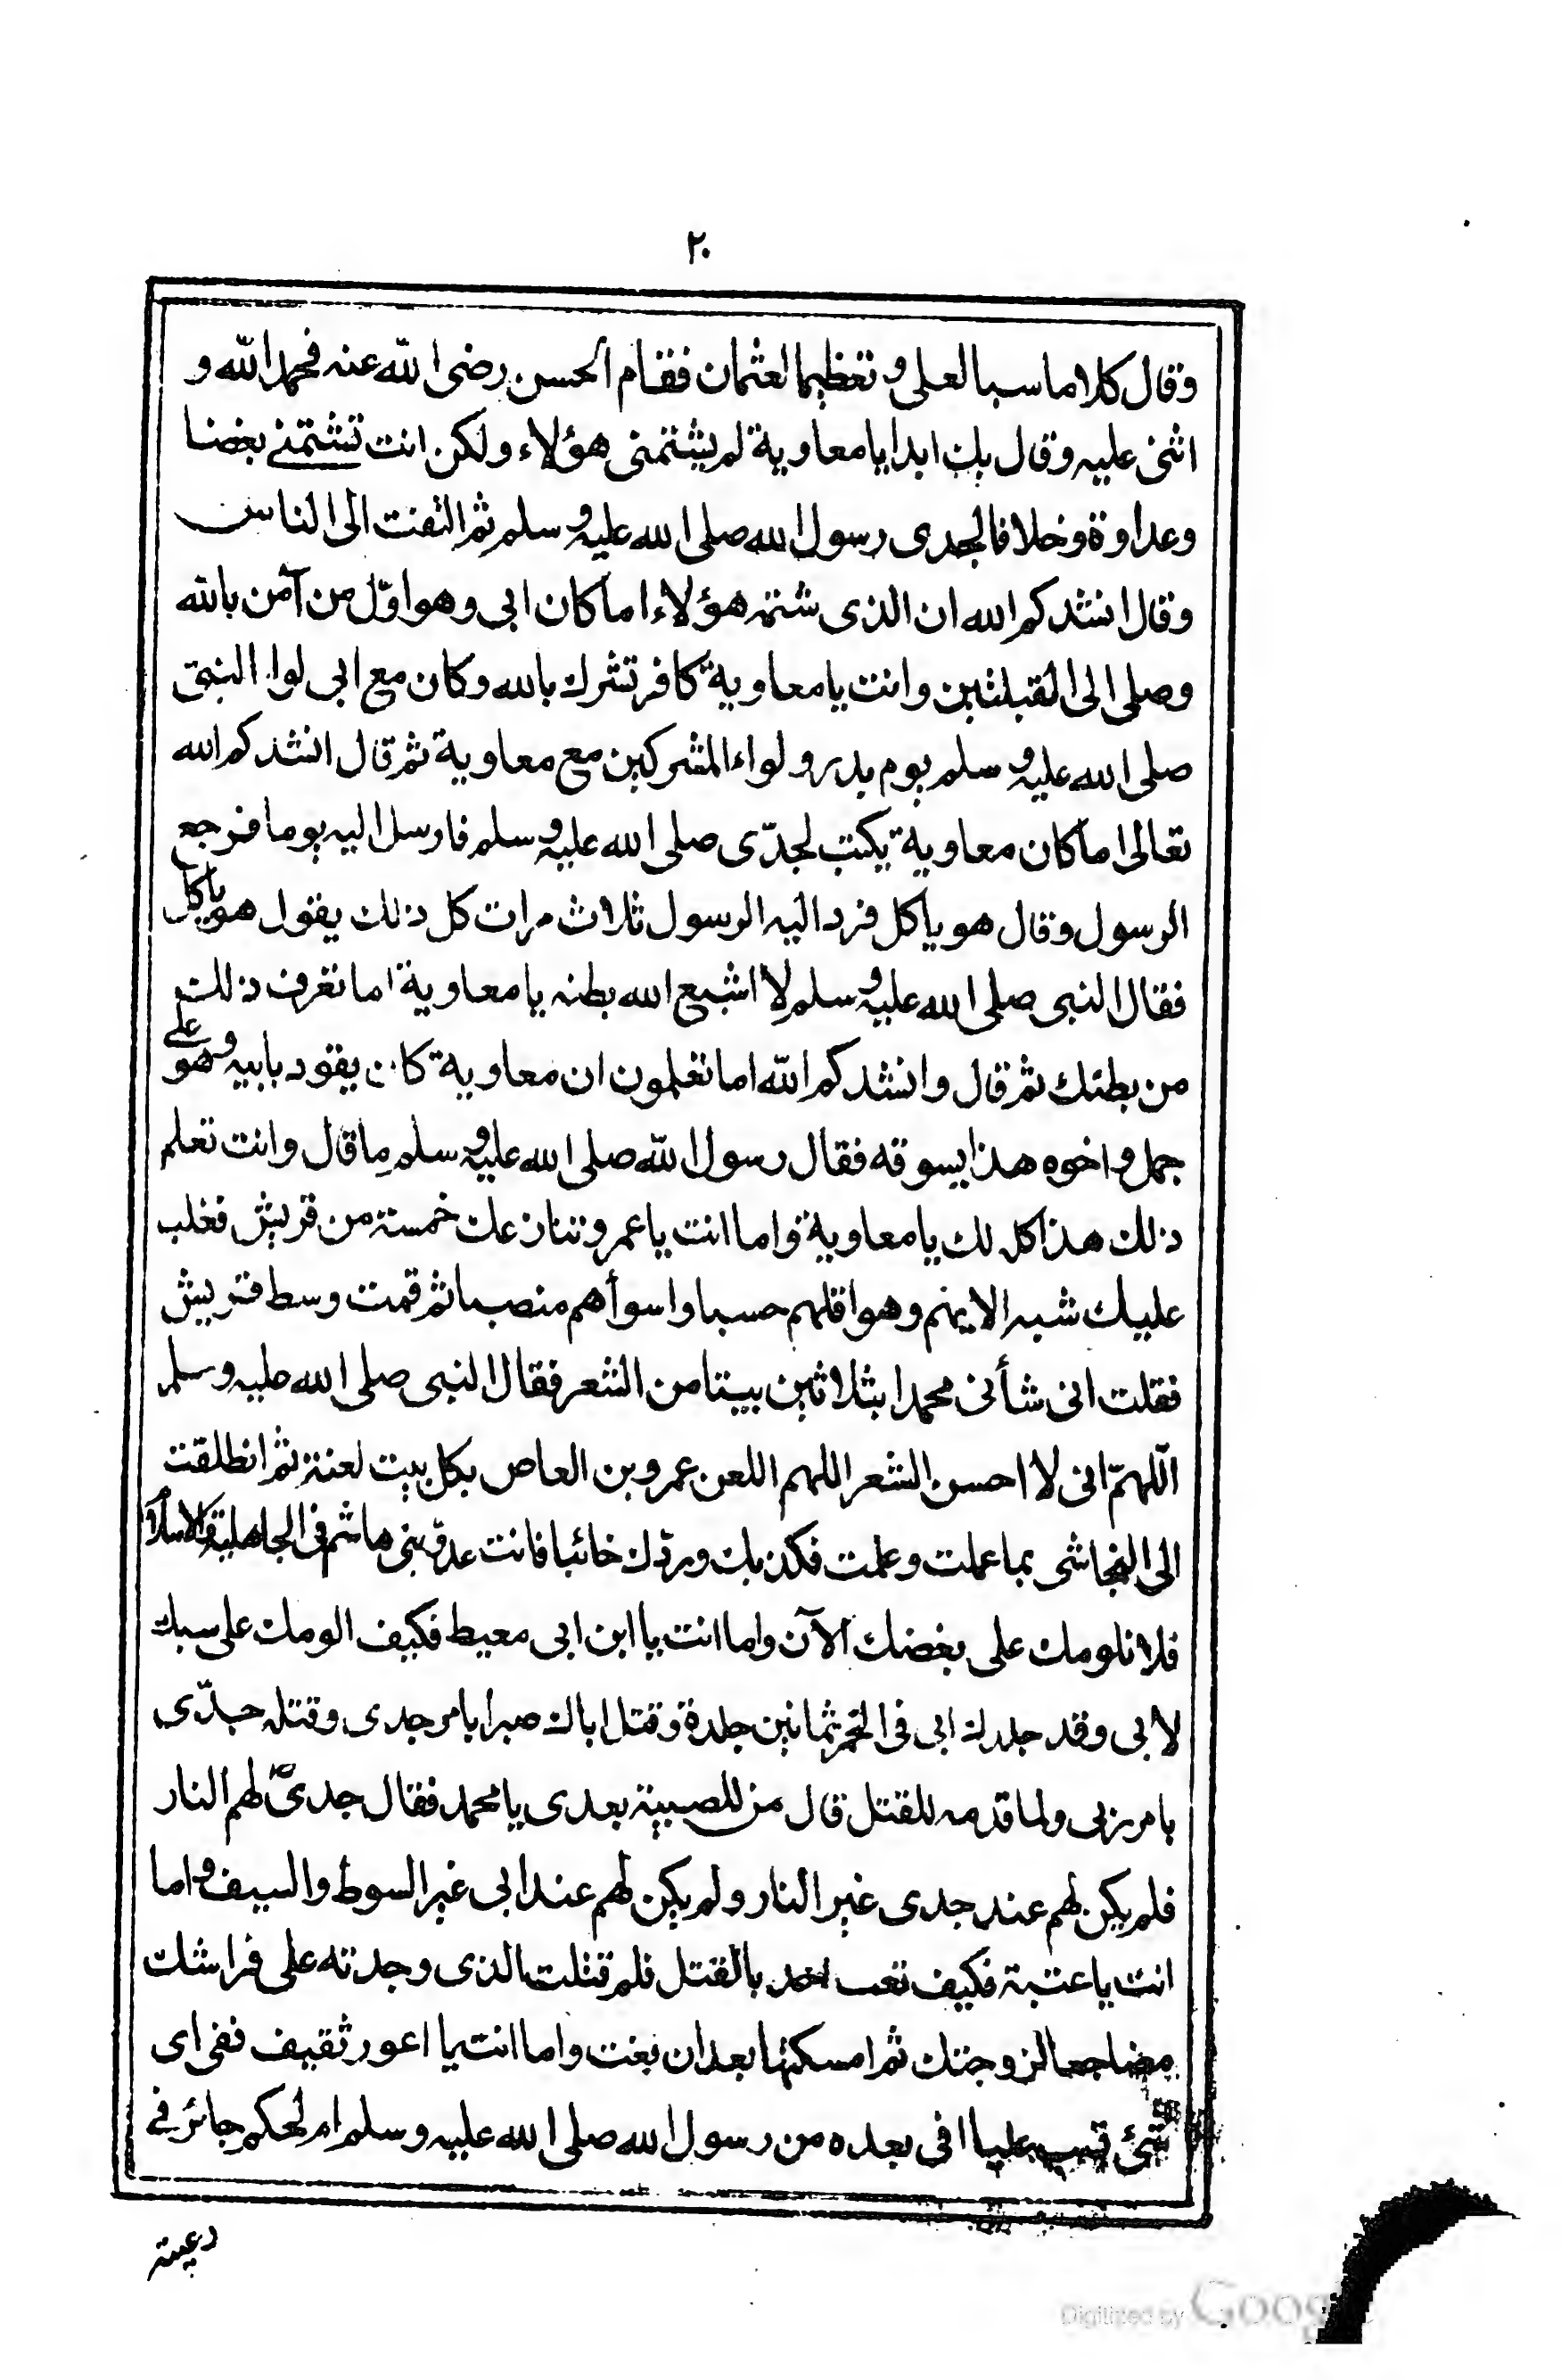 ٢٠
وقال كلاما سبا لعلى و تعظيما لعثمان فقام الحسن رضى الله عنه فحمد الله و
اثنى عليه وقال بك ابدا يا معاوية لم يشتمنى هؤلاء ولكن انت تشتمنے بغضا
وعداوة وخلافا لجدى رسول الله صلى الله عليه و سلم ثم التفت الى الناس
وقال انشدكم الله ان الذى شتمه هؤلاء اما كان ابى وهو اوّل من آمن بالله
وصلى الى القبلتين وانت يا معاوية كافر تشرك بالله وكان مع ابى لواء النبى
صلى الله عليه و سلم يوم بدر ولواء المشركين مع معاوية ثم قال انشدكم الله
تعالى اما كان معاوية يكتب لجدّى صلى الله عليه و سلم فارسل اليه يوما فرجع
الرسول وقال هو ياكل فرد اليه الرسول ثلاث مرات كل ذلك يقول هو ياكل
فقال النبى صلى الله عليه و سلم لا اشبع الله بطنه يا معاوية اما تعرف ذلك
من بطنك ثم قال وانشدكم الله اما تعلمون ان معاوية كان يقود بابيه وهو على
جمل واخوه هذا يسوقه فقال رسول الله صلى الله عليه و سلم ما قال وانت تعلم
ذلك هذا كله لك يا معاوية واما انت يا عمرو تنازعك خمسة من قريش فغلب
عليك شبه الايهم وهو اقلهم حسبا واسوأهم منصبا ثم قمت وسط قريش
فقلت انى شأنى محمدا بثلاثين بيتا من الشعر فقال النبى صلى الله عليه وسلم
اللهمّ انى لا احسن الشعر اللهم اللعن عمرو بن العاص بكل بيت لعنة ثم انطلقت
الى النجاشى بما عملت وعلمت فكذبك وردّك خائبا فانت عدوّ بنى هاشم فى الجاهلية والاسلام
فلا نلومك على بغضك الآن واما انت يا ابن ابى معيط فكيف الومك على سبك
لابى وقد جلدك ابى فى الخمر ثمانين جلدة وقتل اباك صبرا بامر جدى وقتله جدّى
بامر ربى ولما قدمه للقتل قال من للصبية بعدى يا محمد فقال جدى لهم النار
فلم يكن لهم عند جدى غير النار ولم يكن لهم عند ابى غير السوط والسيف واما
انت يا عتبة فكيف تعب احد بالقتل فلم قتلت الذى وجدته على فراشك
مضاجعا لزوجتك ثم امسكتها بعد ان بغت واما انت يا اعور ثقيف ففى اى
شئ تسب عليا افى بعده من رسول الله صلى الله عليه وسلم ام لحكم جائر فے
رعيته
Digitized by Google